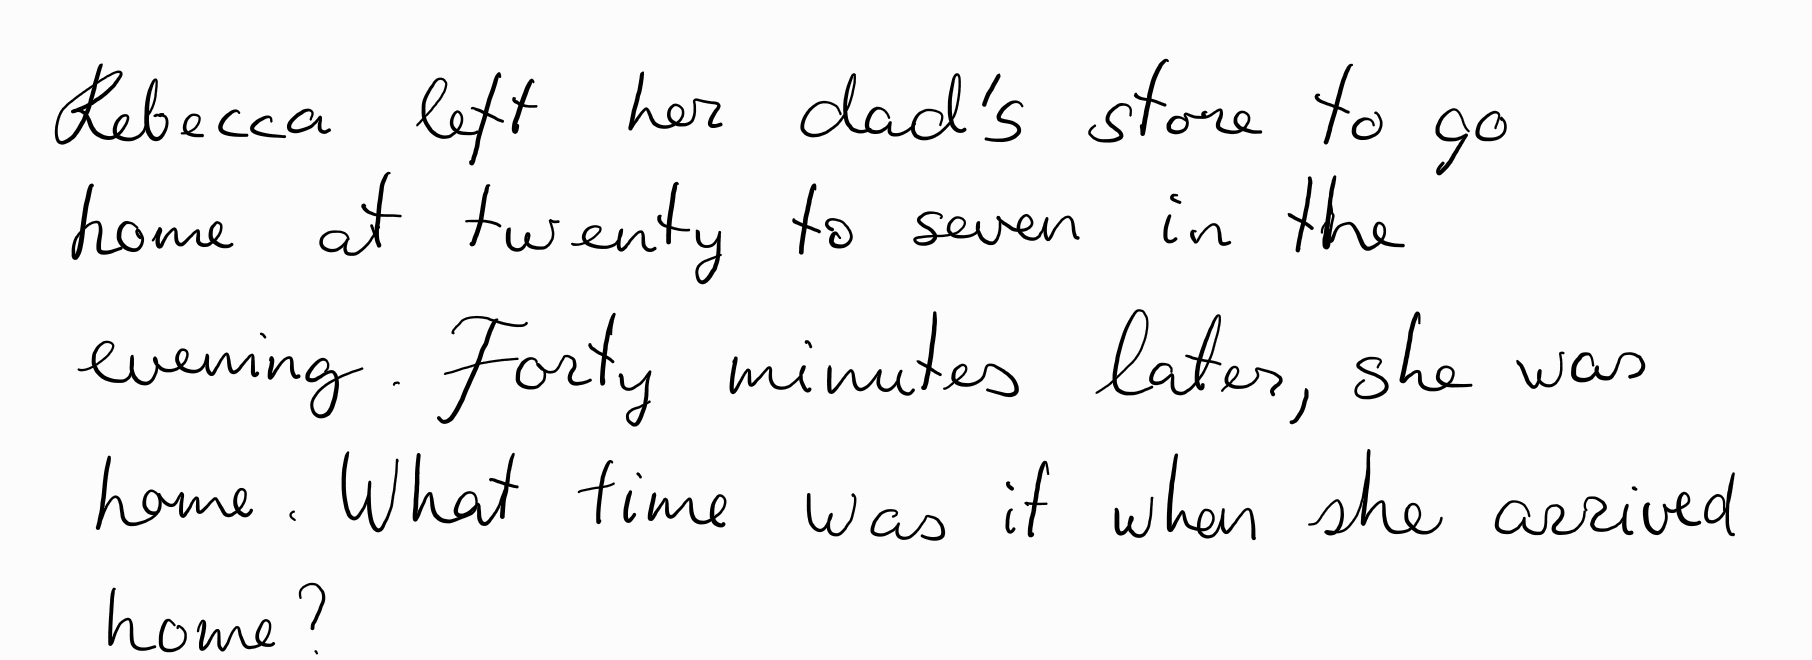 Rebecca left her dad's store to go
home at twenty to seven in the
evening. Forty minutes later, she was
home. What time was it when she arrived
home?